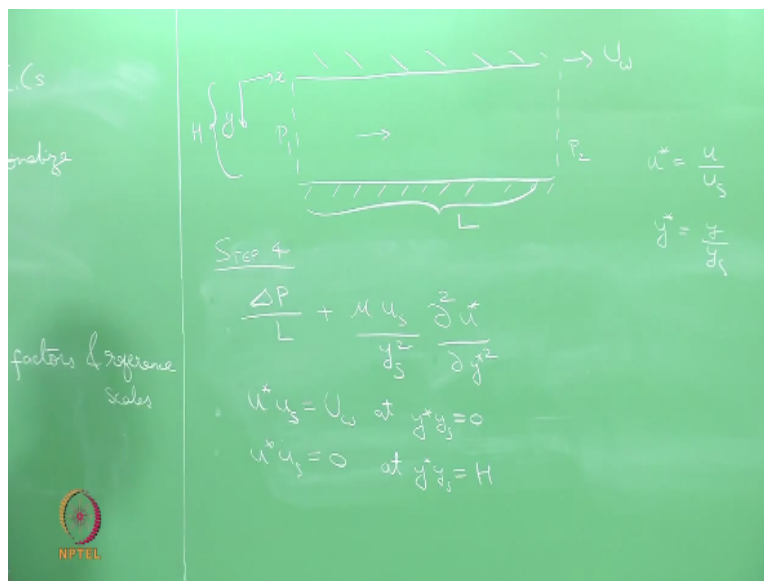 .Cs
onalize
factors & reference
scales
→ U_w
x
H
y
P_1
→
P_2
L
u* = u/u_s
y* = y/y_s
STEP 4
ΔP/L + μ u_s/y_s^2 ∂^2 u*/∂ y*^2
u* u_s = U_w at y* y_s = 0
u* u_s = 0 at y* y_s = H
NPTEL